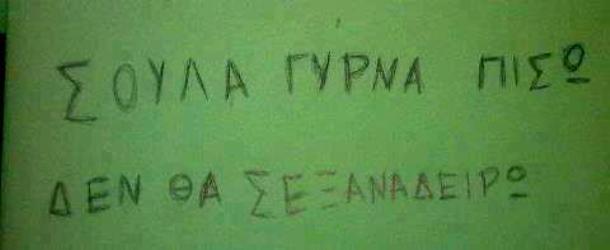 ΣΟΥΛΑ ΓΥΡΝΑ ΠΙΣΩ
ΔΕΝ ΘΑ ΣΕΞΑΝΑΔΕΙΡΩ